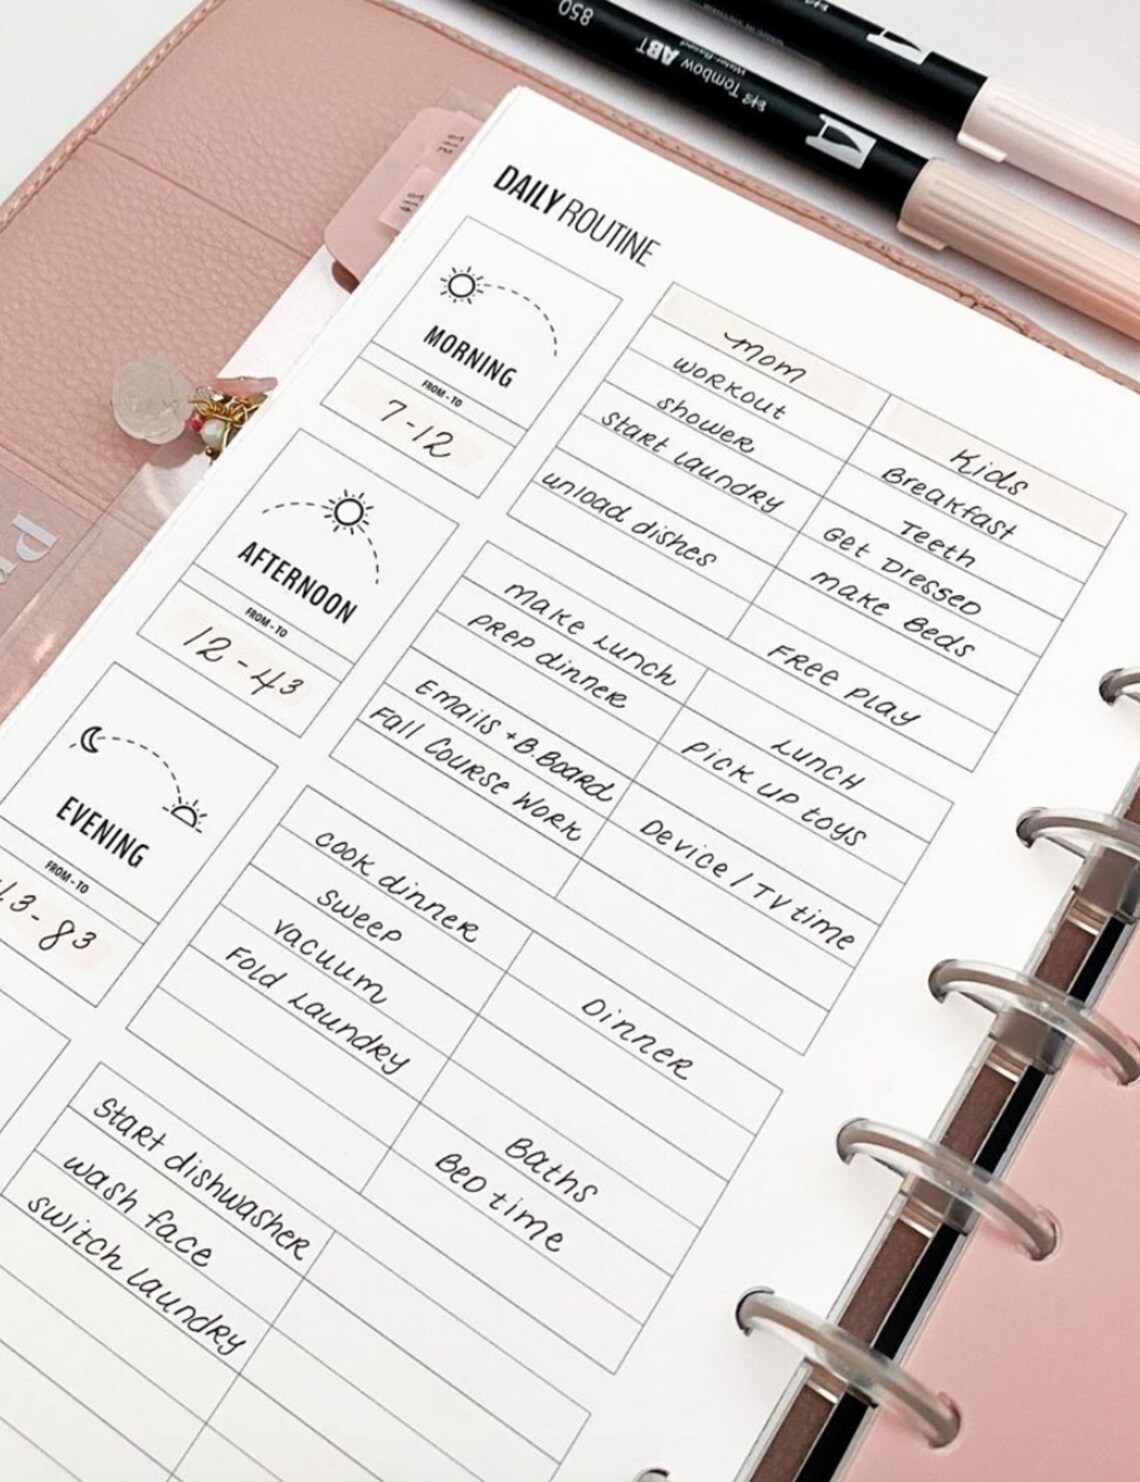 850
ABT
Tombow
Water-Based
DAILY ROUTINE
MORNING
FROM - TO
7-12
mom
workout
shower
start laundry
unload dishes
Kids
Breakfast
Teeth
Get Dressed
make Beds
Free play
AFTERNOON
FROM - TO
12-4³
make Lunch
prep dinner
Emails + B.Board
Fall Course Work
Lunch
pick up toys
Device / TV time
EVENING
FROM - TO
43-8³
cook dinner
sweep
vacuum
Fold Laundry
Dinner
Baths
Bed time
Start dishwasher
wash face
switch laundry